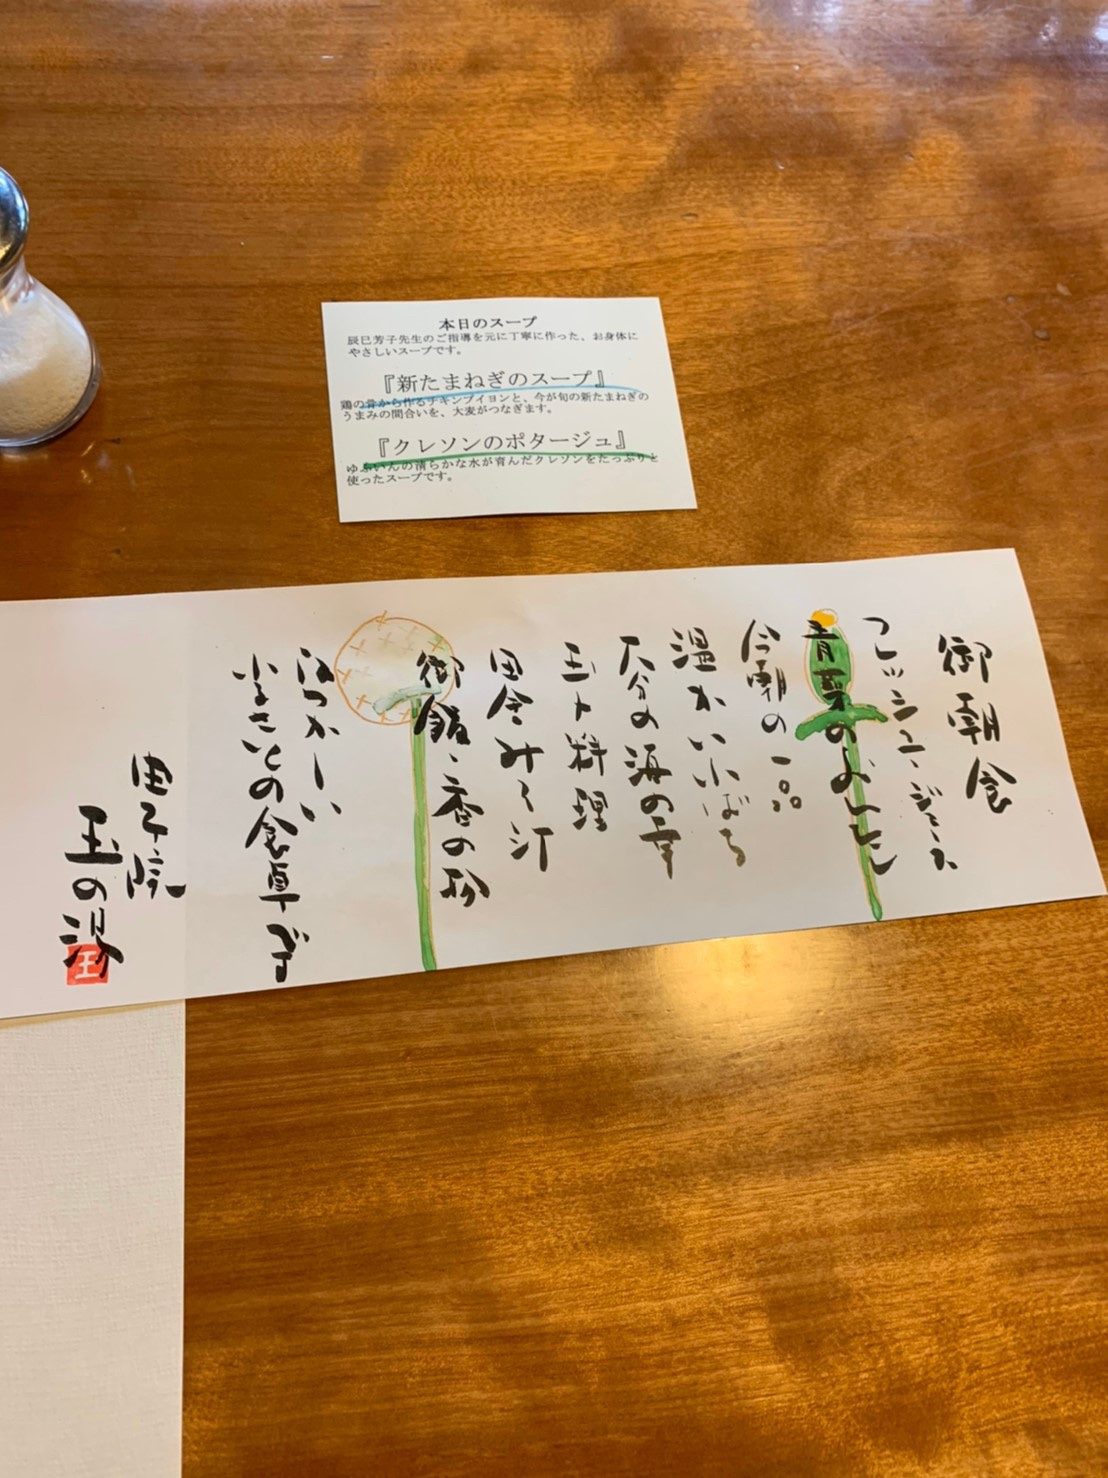 本日のスープ
辰巳芳子先生のご指導を元に丁寧に作った、お身体に
やさしいスープです。
『新たまねぎのスープ』
鶏の骨から作るチキンブイヨンと、今が旬の新たまねぎの
うまみの間合いを、大麦がつなぎます。
『クレソンのポタージュ』
ゆふいんの清らかな水が育んだクレソンをたっぷりと
使ったスープです。
御朝食
フレッシュジュース
青菜のおひたし
今朝の一品
温かい小ばち
大分の海の幸
玉子料理
田舎みそ汁
御飯・香の物
なつかしい
ふるさとの食卓です
由布院
玉の湯
玉